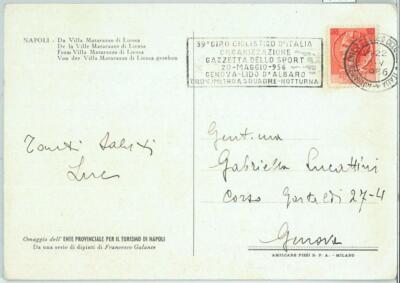 NAPOLI - Da Villa Matarazzo di Licosa
De la Villa Matarazzo di Licosa
From Villa Matarazzo di Licosa
Von der Villa Matarazzo di Licosa gesehen
39° GIRO CICLISTICO D'ITALIA
ORGANIZZAZIONE
GAZZETTA DELLO SPORT
20-MAGGIO-956
GENOVA-LIDO D'ALBARO
CRONOMETRO A SQUADRE-NOTTURNA
Tanti saluti
Gent.ma
Gabriella Lucattini
Corso Gastaldi 27-4
Genova
Omaggio dell' ENTE PROVINCIALE PER IL TURISMO DI NAPOLI
Da una serie di dipinti di Francesco Galante
AMILCARE PIZZI S. P. A. - MILANO